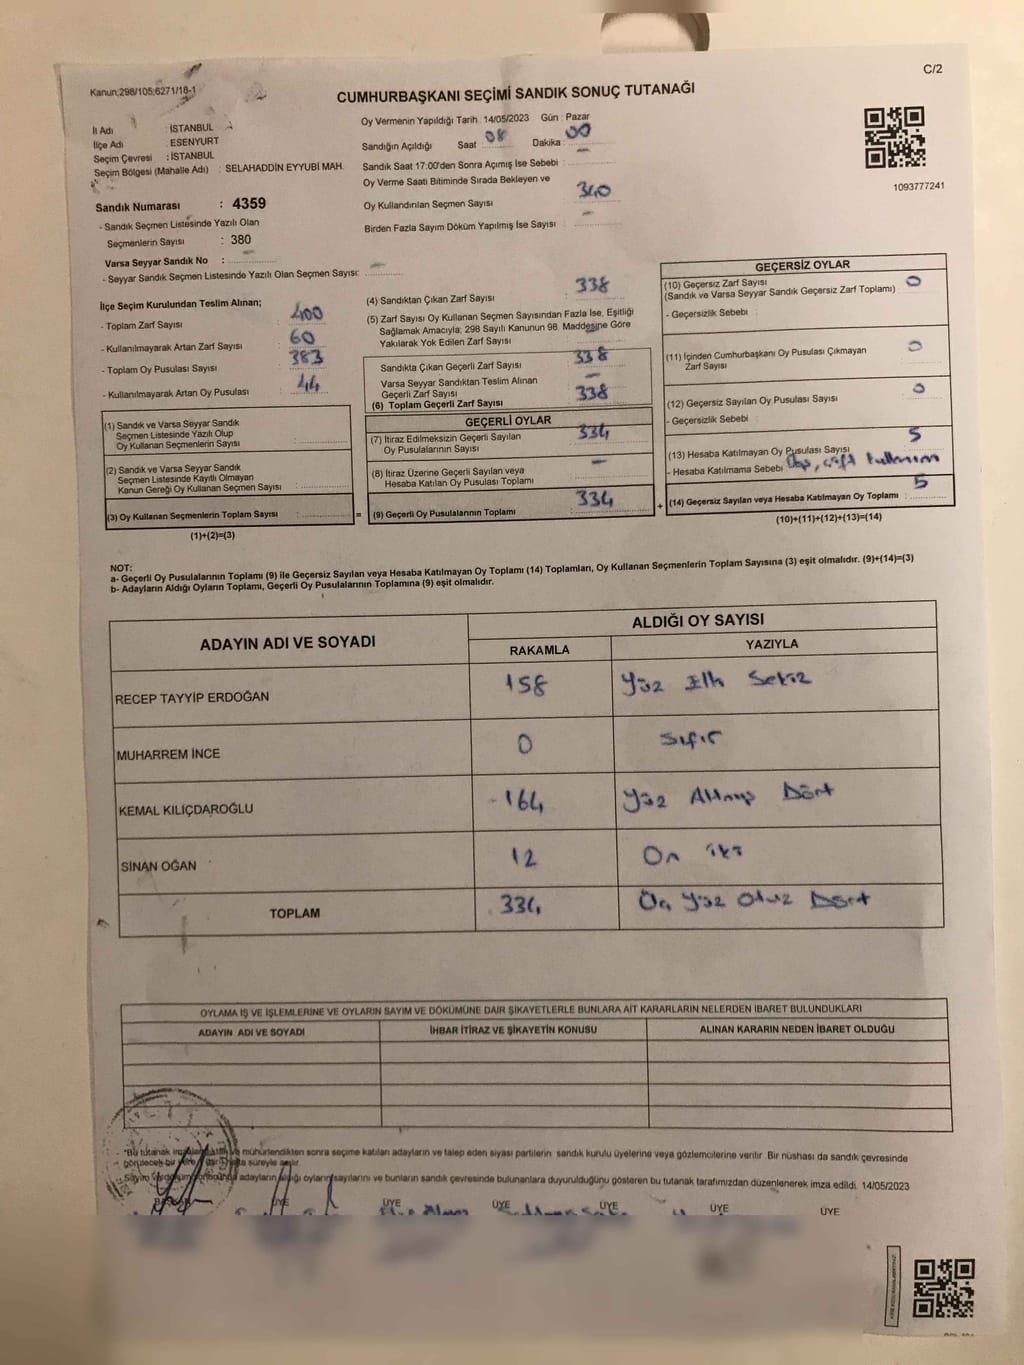 C/2
Kanun;298/105;6271/18-1
CUMHURBAŞKANI SEÇİMİ SANDIK SONUÇ TUTANAĞI
İl Adı : İSTANBUL
İlçe Adı : ESENYURT
Seçim Çevresi : İSTANBUL
Seçim Bölgesi (Mahalle Adı) : SELAHADDİN EYYUBİ MAH.
Sandık Numarası : 4359
- Sandık Seçmen Listesinde Yazılı Olan
Seçmenlerin Sayısı : 380
Varsa Seyyar Sandık No :
- Seyyar Sandık Seçmen Listesinde Yazılı Olan Seçmen Sayısı:
Oy Vermenin Yapıldığı Tarih 14/05/2023 Gün : Pazar
Sandığın Açıldığı Saat 08 Dakika 00
Sandık Saat 17:00'den Sonra Açımış İse Sebebi :
Oy Verme Saati Bitiminde Sırada Bekleyen ve
Oy Kullandırılan Seçmen Sayısı 340
Birden Fazla Sayım Döküm Yapılmış İse Sayısı :
1093777241
İlçe Seçim Kurulundan Teslim Alınan;
- Toplam Zarf Sayısı : 400
- Kullanılmayarak Artan Zarf Sayısı : 60
- Toplam Oy Pusulası Sayısı : 383
- Kullanılmayarak Artan Oy Pusulası : 44
(1) Sandık ve Varsa Seyyar Sandık
Seçmen Listesinde Yazılı Olup
Oy Kullanan Seçmenlerin Sayısı :
(2) Sandık ve Varsa Seyyar Sandık
Seçmen Listesinde Kayıtlı Olmayan
Kanun Gereği Oy Kullanan Seçmen Sayısı :
(3) Oy Kullanan Seçmenlerin Toplam Sayısı :
(1)+(2)=(3)
=
(4) Sandıktan Çıkan Zarf Sayısı : 338
(5) Zarf Sayısı Oy Kullanan Seçmen Sayısından Fazla İse, Eşitliği
Sağlamak Amacıyla; 298 Sayılı Kanunun 98. Maddesine Göre
Yakılarak Yok Edilen Zarf Sayısı :
Sandıkta Çıkan Geçerli Zarf Sayısı : 338
Varsa Seyyar Sandıktan Teslim Alınan
Geçerli Zarf Sayısı :
(6) Toplam Geçerli Zarf Sayısı 338
GEÇERLİ OYLAR
(7) İtiraz Edilmeksizin Geçerli Sayılan
Oy Pusulalarının Sayısı : 334
(8) İtiraz Üzerine Geçerli Sayılan veya
Hesaba Katılan Oy Pusulası Toplamı :
(9) Geçerli Oy Pusulalarının Toplamı : 334
+
GEÇERSİZ OYLAR
(10) Geçersiz Zarf Sayısı 0
(Sandık ve Varsa Seyyar Sandık Geçersiz Zarf Toplamı)
- Geçersizlik Sebebi :
(11) İçinden Cumhurbaşkanı Oy Pusulası Çıkmayan 0
Zarf Sayısı
(12) Geçersiz Sayılan Oy Pusulası Sayısı 0
- Geçersizlik Sebebi :
(13) Hesaba Katılmayan Oy Pusulası Sayısı 5
- Hesaba Katılmama Sebebi çift kullanım
(14) Geçersiz Sayılan veya Hesaba Katılmayan Oy Toplamı : 5
(10)+(11)+(12)+(13)=(14)
NOT:
a- Geçerli Oy Pusulalarının Toplamı (9) ile Geçersiz Sayılan veya Hesaba Katılmayan Oy Toplamı (14) Toplamları, Oy Kullanan Seçmenlerin Toplam Sayısına (3) eşit olmalıdır. (9)+(14)=(3)
b- Adayların Aldığı Oyların Toplamı, Geçerli Oy Pusulalarının Toplamına (9) eşit olmalıdır.
ADAYIN ADI VE SOYADI
ALDIĞI OY SAYISI
RAKAMLA YAZIYLA
RECEP TAYYİP ERDOĞAN 158 Yüz Elli Sekiz
MUHARREM İNCE 0 Sıfır
KEMAL KILIÇDAROĞLU 164 Yüz Altmış Dört
SİNAN OĞAN 12 On iki
TOPLAM 334 Üç Yüz Otuz Dört
OYLAMA İŞ VE İŞLEMLERİNE VE OYLARIN SAYIM VE DÖKÜMÜNE DAİR ŞİKAYETLERLE BUNLARA AİT KARARLARIN NELERDEN İBARET BULUNDUKLARI
ADAYIN ADI VE SOYADI İHBAR İTİRAZ VE ŞİKAYETİN KONUSU ALINAN KARARIN NEDEN İBARET OLDUĞU
"Bu tutanak mühürlendikten sonra seçime katılan adayların ve talep eden siyasi partilerin sandık kurulu üyelerine veya gözlemcilerine verilir. Bir nüshası da sandık çevresinde
görülecek bir süreyle asılır.
adayların aldığı oyların sayılarını ve bunların sandık çevresinde bulunanlara duyurulduğunu gösteren bu tutanak tarafımızdan düzenlenerek imza edildi. 14/05/2023
BAŞKAN ÜYE ÜYE ÜYE ÜYE ÜYE ÜYE